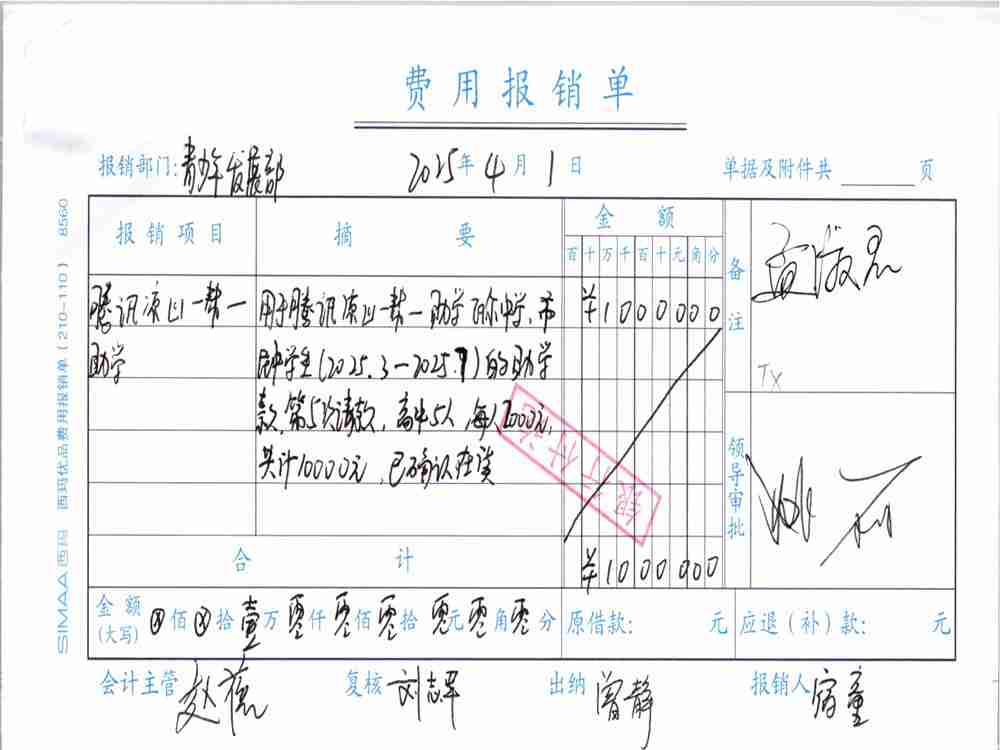 费用报销单
报销部门:青少年发展部 2025年4月1日 单据及附件共 页
报销项目 摘要 金额 备注
百十万千百十元角分
腾讯凉山一帮一 用于腾讯凉山一帮一助学 中学、 ¥1000000
助学 中学生(2025.3—2025.7)的助学
款,第5次请款,高中5人,每人2000元,
共计10000元,已确认在读
银行付讫
TX
领导审批
合计 ¥1000000
金额(大写) ⊗佰⊗拾壹万零仟零佰零拾零元零角零分 原借款: 元 应退(补)款: 元
会计主管 赵薇 复核 刘志军 出纳 曾静 报销人 宿童
SIMAA西玛 西玛优品费用报销单(210-110) 8560